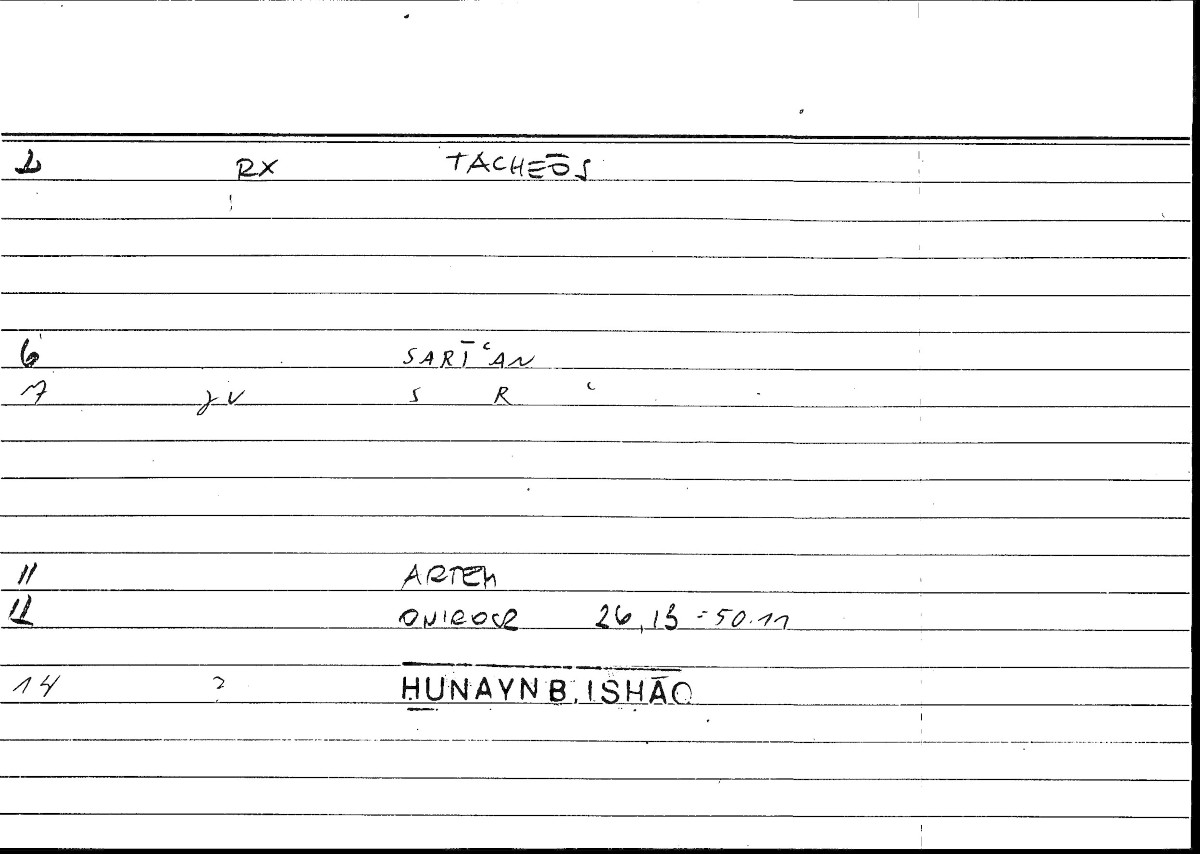 1 RX TACHEŌS
6 SARĪʿAN
7 JV S R ʿ
11 ARTEM
12 ONIROCR 26,13 - 50.11
14 ? ḤUNAYN B. ISḤĀQ